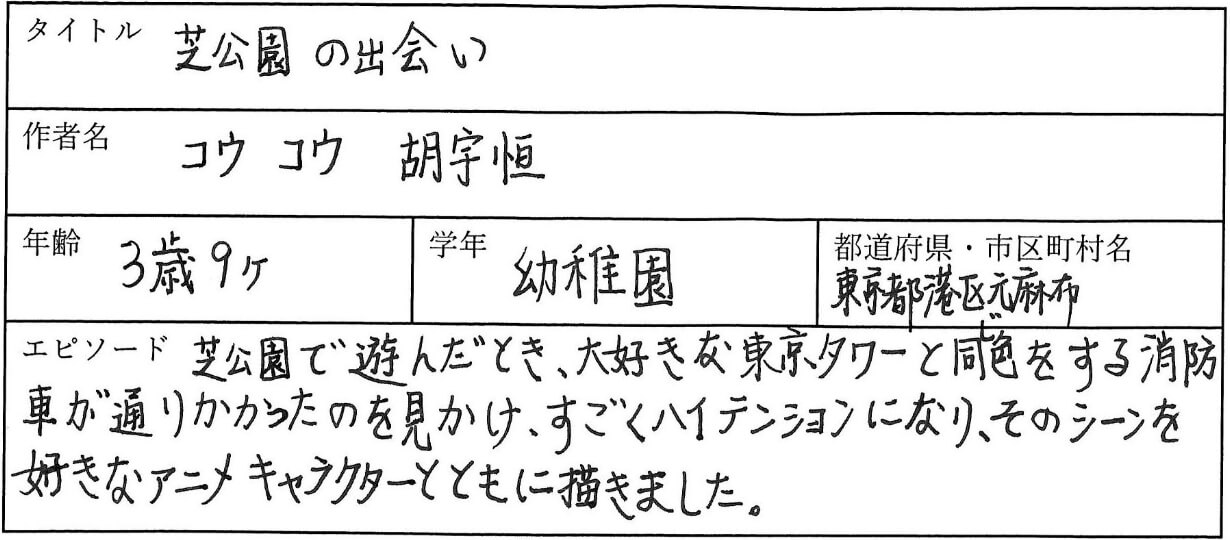 タイトル 芝公園の出会い
作者名 コウコウ 胡宇恒
年齢 3歳9ヶ
学年 幼稚園
都道府県・市区町村名
東京都港区元麻布
エピソード 芝公園で遊んだとき、大好きな東京タワーと同じ色をする消防
車が通りかかったのを見かけ、すごくハイテンションになり、そのシーンを
好きなアニメキャラクターとともに描きました。